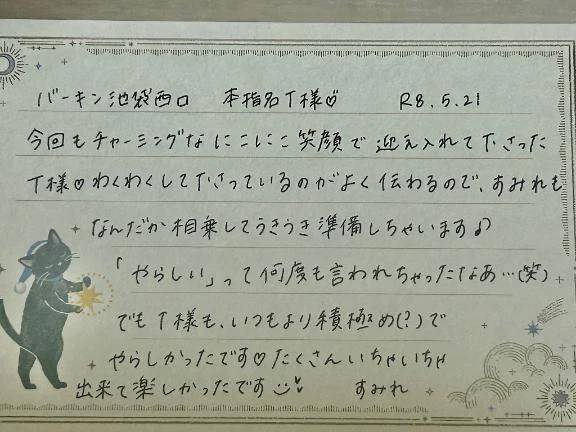 バーキン池袋西口 本指名T様♡ R8.5.21
今回もチャーミングなにこにこ笑顔で迎え入れて下さった
T様♡わくわくして下さっているのがよく伝わるので、すみれも
なんだか相乗してうきうき準備しちゃいます♪
「やらしい」って何度も言われちゃったなあ…(笑)
でもT様も、いつもより積極め(?)で
やらしかったです♡たくさんいちゃいちゃ
出来て楽しかったです すみれ